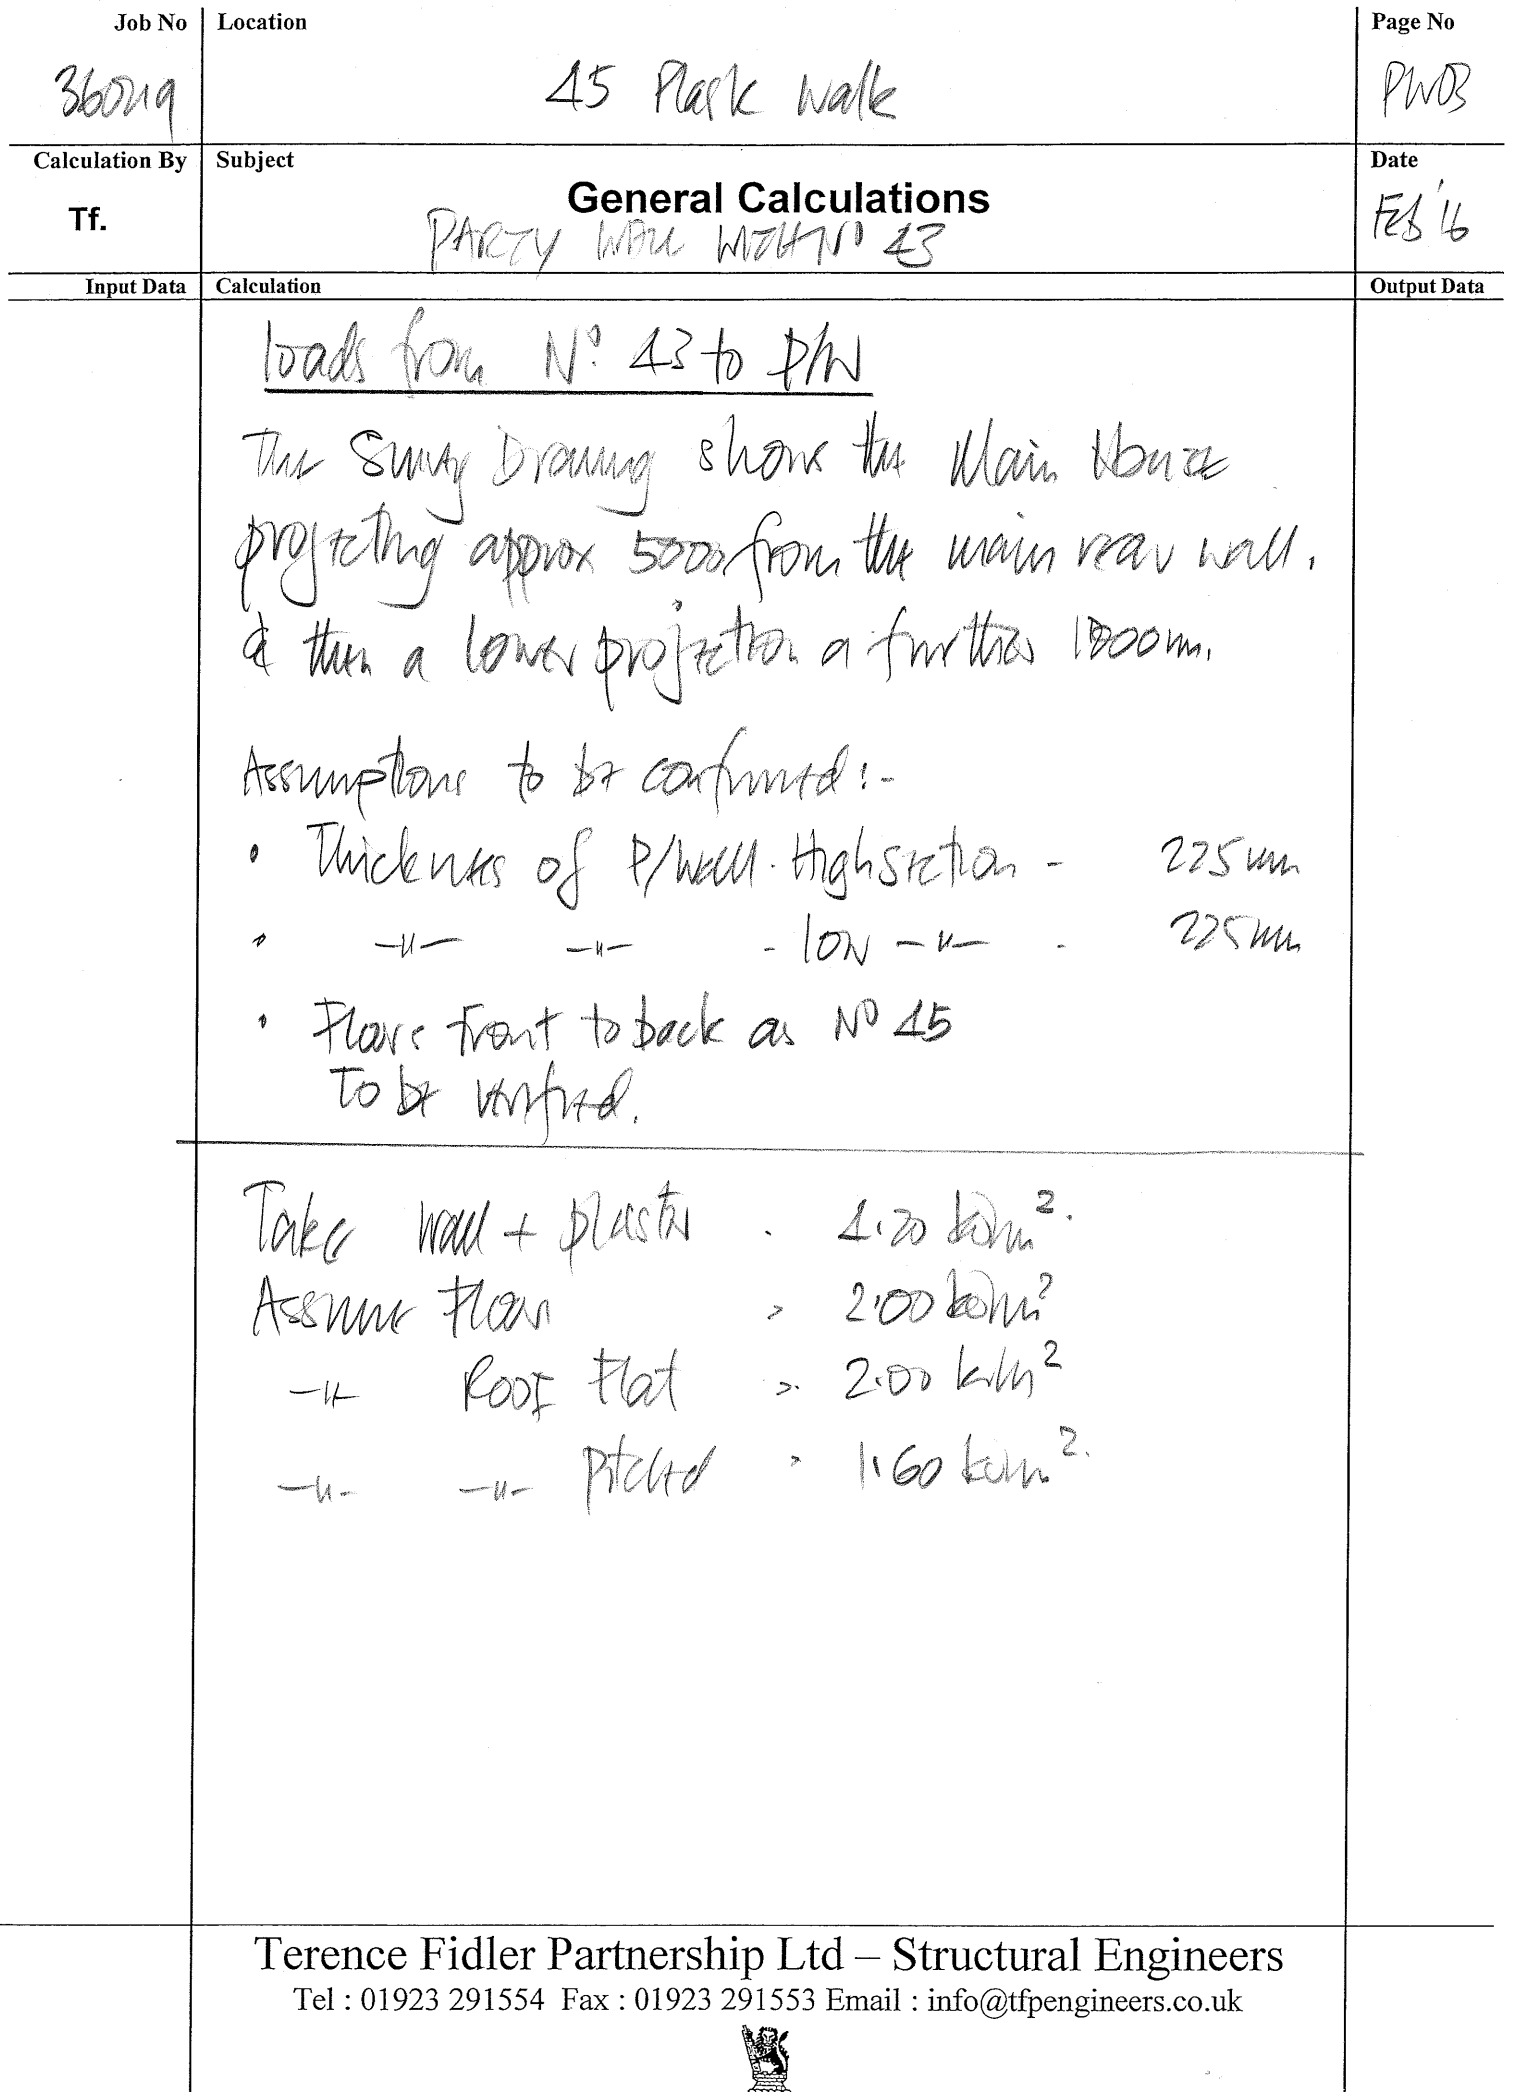 Job No Location Page No
45 Flask Walk PW03
Calculation By Subject Date
Tf. General Calculations Feb '16
PARTY WALL WITH No 43
Input Data Calculation Output Data
Loads from No. 43 to P/W
The Survey Drawing shows the Main House
projecting approx 5000 from the main rear wall.
& then a lower projection a further
Assumptions to be confirmed :-
• Thickness of P/Wall. High Section - 225mm
• -"- -"- - low -"- - 225mm
• Floors front to back as No 45
To be verified.
Take wall + plaster . 4.70 kN/m².
Assume Floor > 2.00 kN/m²
-"- Roof Flat > 2.00 kN/m²
-"- -"- Pitched > 1.60 kN/m².
Terence Fidler Partnership Ltd – Structural Engineers
Tel : 01923 291554 Fax : 01923 291553 Email : info@tfpengineers.co.uk